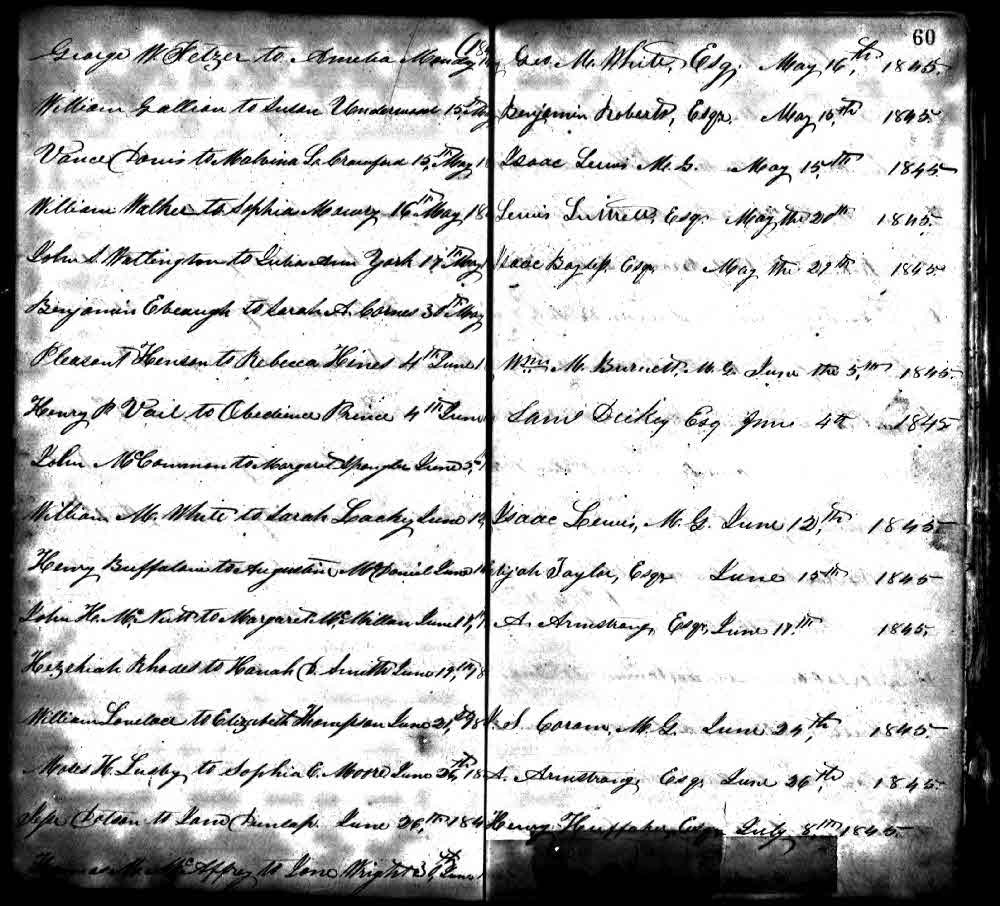 60
George W. Fetzer to Amelia Monday Geo. M. White, Esq. May 16th, 1845.
William Gallion to Susan Underwood 15th May Benjamin Roberts, Esqr. May 15th 1845.
Vance Davis to Malvina L. Crawford 15th May 1 Isaac Lewis M. G. May 15th 1845
William Walker to Sophia Maury 16th May 18 Lewis Luttrell, Esq. May the 20th 1845.
John S. Wattington to Julia Ann York 17th May Isaac Bayless Esq. May the 27th 1845
Benjamin Ebeaugh to Sarah A. Carnes 30th May
Pleasant Henson to Rebecca Hines 4th June 1 Wm. M. Burnett, M. G. June the 5th, 1845.
Henry P. Vail to Obedience Prince 4th June Saml Dickey Esq June 4th 1845
John McCammon to Margaret Spangler June 5th 1
William M. White to Sarah Lacky June 12 Isaac Lewis, M. G. June 12th, 1845
Henry Buffalow to Augustin McDaniel June Elijah Taylor, Esqr June 15th 1845
John H. McNutt to Margaret McMillan June 17th, 1 A. Armstrong, Esqr, June 17th 1845.
Hezekiah Rhodes to Hanah D. Smith June 19th, 18
William Lovelace to Elizabeth Thompson June 21st, 18 S. Coram, M. G. June 24th, 1845.
Moses H. Lusby to Sophia C. Moore June 26th 18 A. Armstrong, Esq. June 26th, 1845.
Dotson to Jane Dunlap. June 26th, 184 Henry Huffaker, Esqr July 8th, 1845
Thomas M. McAffrey to Jane Wright 30th June 1